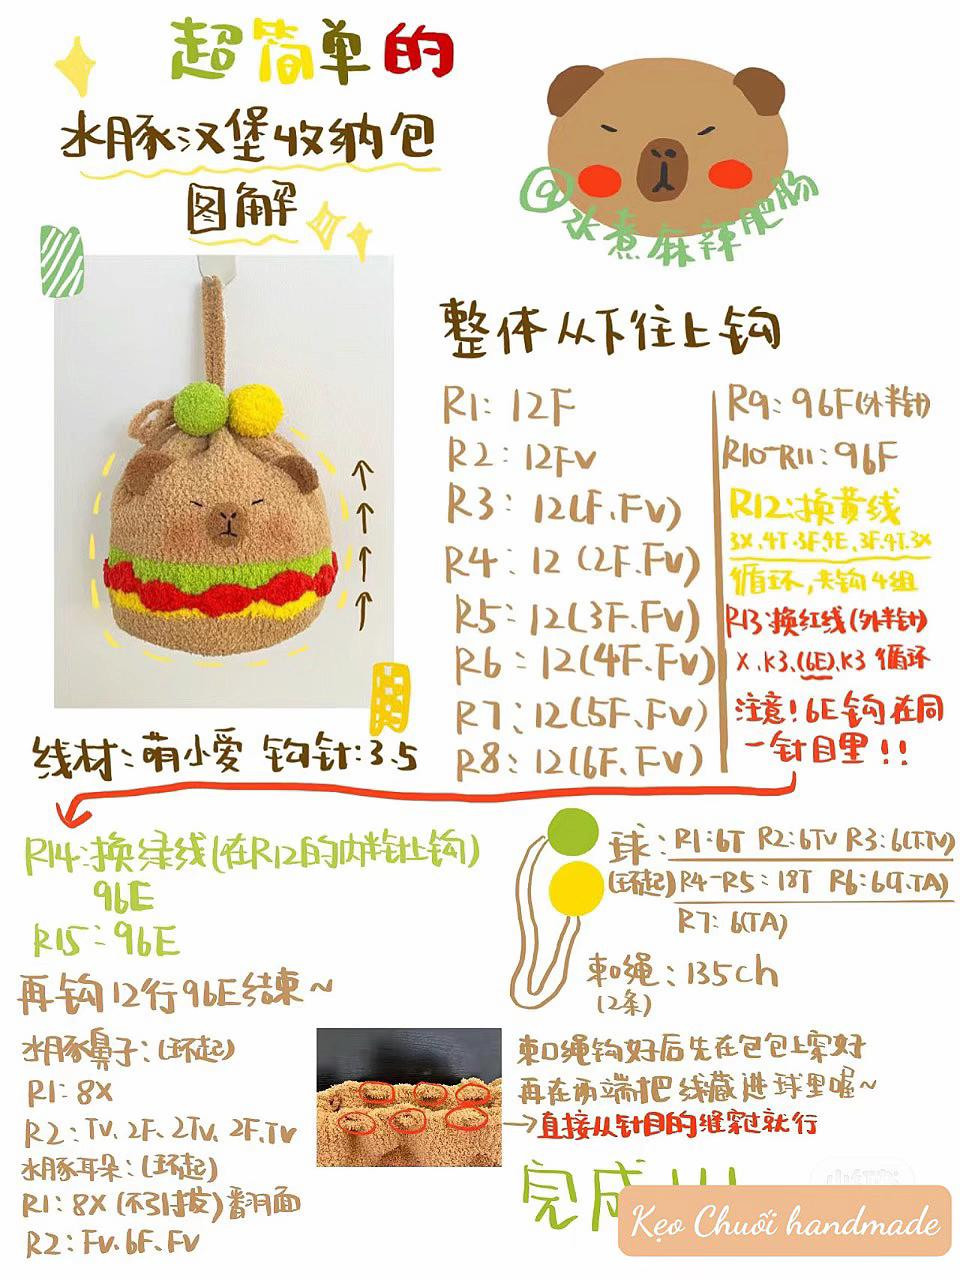 超简单的
水豚汉堡收纳包
图解
@水煮麻辣肥肠
整体从下往上钩
R1: 12F
R2: 12FV
R3: 12(F.FV)
R4: 12(2F.FV)
R5: 12(3F.FV)
R6: 12(4F.FV)
R7: 12(5F.FV)
R8: 12(6F.FV)
R9: 96F(外半针)
R10-R11: 96F
R12:换黄线
3X.4T.3F.4E.3F.4T.3X
循环,共钩4组
R13:换红线(外半针)
X.K3.(6E).K3 循环
注意!6E钩在同
一针目里!!
线材:萌小爱 钩针:3.5
R14:换绿线(在R12的内半针上钩)
96E
R15:96E
再钩12行96E结束~
水豚鼻子:(环起)
R1:8X
R2:TV.2F.2TV.2F.TV
水豚耳朵:(环起)
R1:8X(不引拔)翻面
R2:FV.6F.FV
球:R1:6T R2:6TV R3:6(T.TV)
(环起)R4-R5:18T R6:6(T.TA)
R7:6(TA)
束口绳:135ch
(2条)
束口绳钩好后先在包包上穿好
再在两端把线藏进球里喔~
→直接从针目的缝穿过就行
完成!!!
Kẹo Chuối handmade